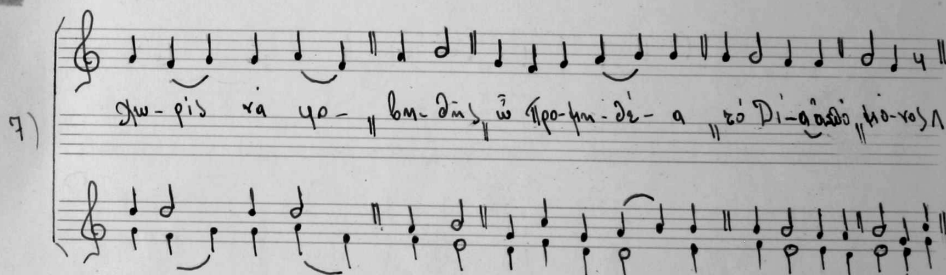 7) χω-ρίς νά φο- βη-θῆς ὦ Προ-μη-θέ-α τό Δί-α μό-νος